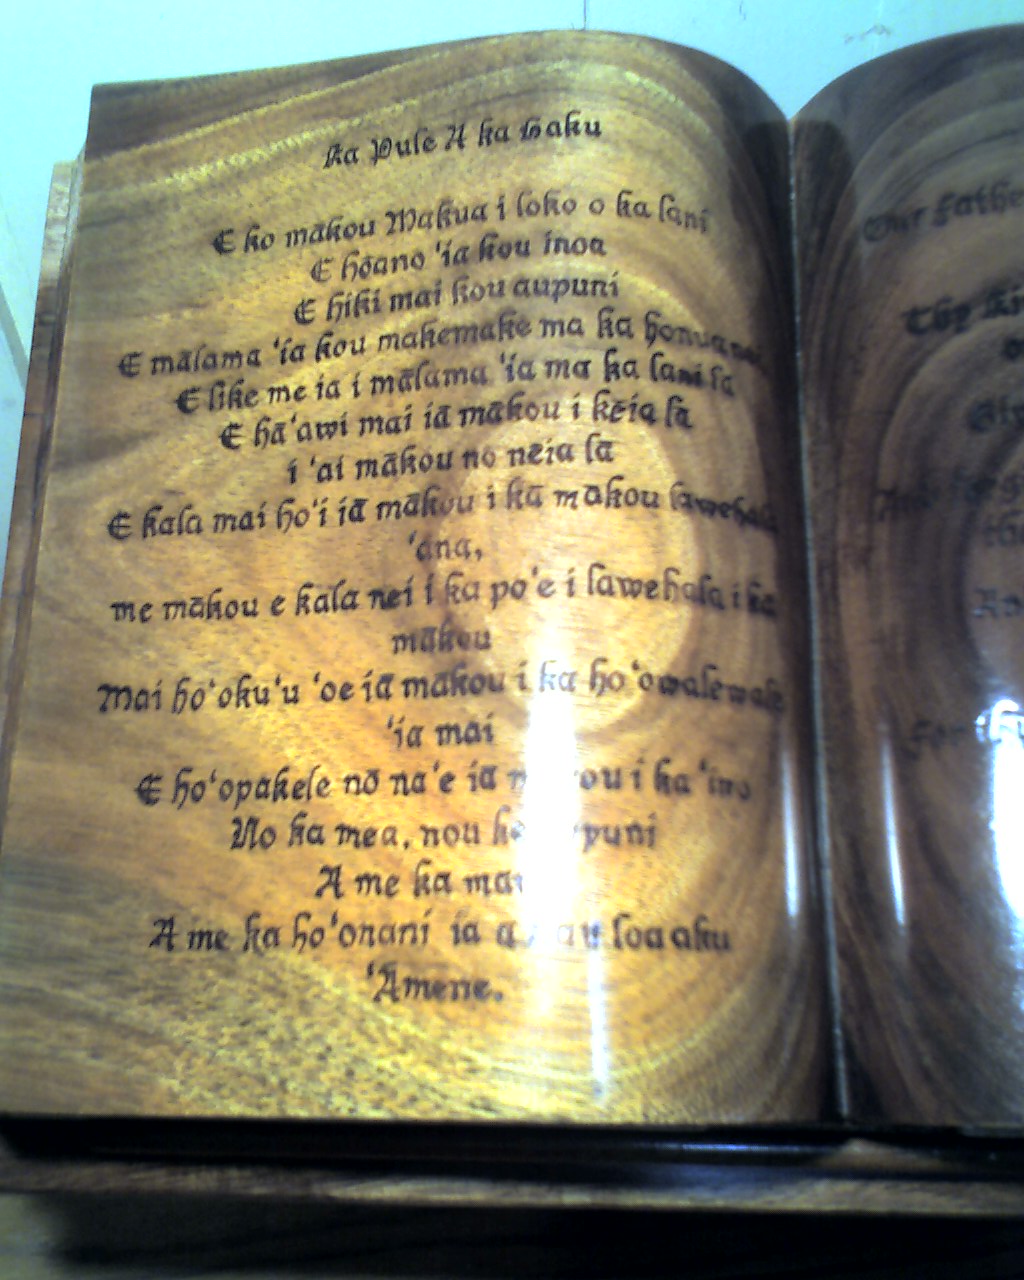 Ka Pule A ka Haku
E ko mākou Makua i loko o ka lani
E hōano ʻia kou inoa
E hiki mai kou aupuni
E mālama ʻia kou makemake ma ka honua nei
E like me ia i mālama ʻia ma ka lani lā
E hāʻawi mai iā mākou i kēia lā
i ʻai mākou no nēia lā
E kala mai hoʻi iā mākou i kā mākou lawehala
ʻana,
me mākou e kala nei i ka poʻe i lawehala i kā
mākou
Mai hoʻokuʻu ʻoe iā mākou i ka hoʻowalewale
ʻia mai
E hoʻopakele nō naʻe iā i ka ʻino
No ka mea, nou
A me ka
A me ka hoʻonani ia loa aku
ʻĀmene.
Our Fathe
Thy Ki